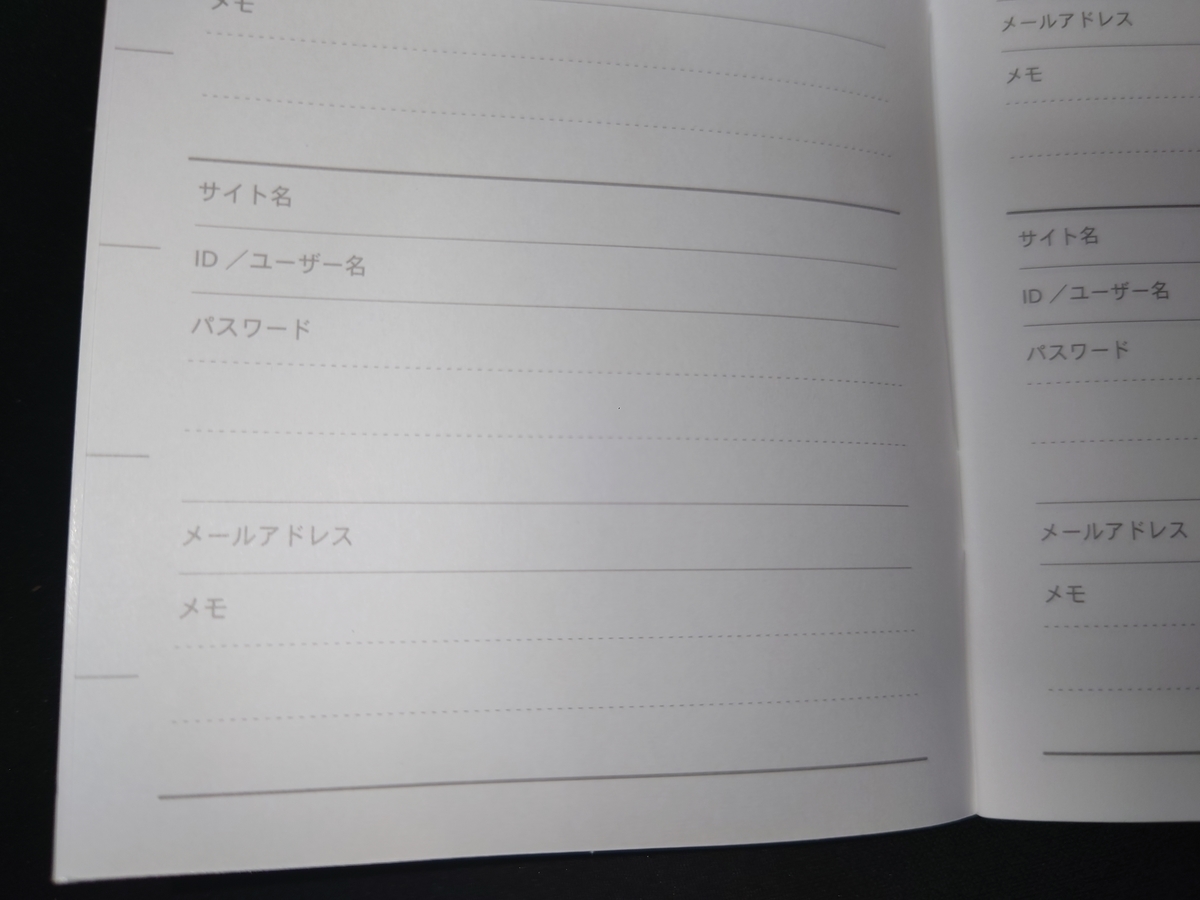 メモ
サイト名
ID ／ユーザー名
パスワード
メールアドレス
メモ
メールアドレス
メモ
サイト名
ID ／ユーザー名
パスワード
メールアドレス
メモ